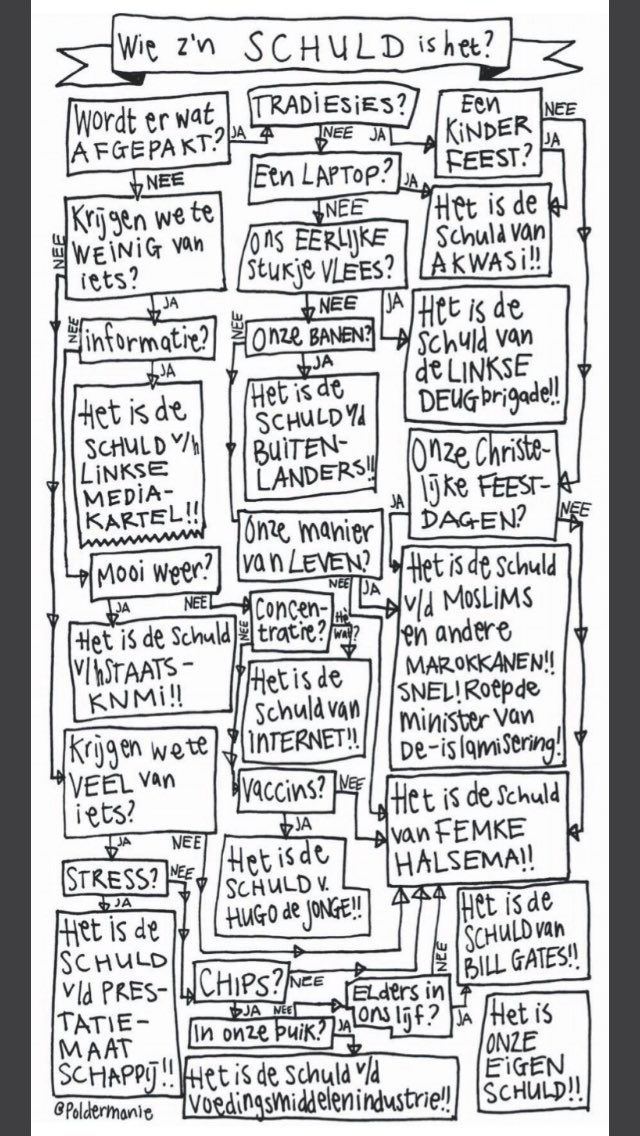 Wie z'n SCHULD is het?
Wordt er wat
AFGEPAKT?
JA
NEE
TRADIESIES?
NEE
JA
Een
KINDER
FEEST?
NEE
JA
Een LAPTOP?
JA
NEE
Het is de
Schuld van
AKWASI!!
Krijgen we te
WEINIG van
iets?
NEE
JA
Ons EERLIJKE
stukje VLEES?
NEE
JA
Het is de
Schuld van
de LINKSE
DEUGbrigade!!
informatie?
NEE
JA
Onze BANEN?
NEE
JA
Het is de
SCHULD v/h
LINKSE
MEDIA-
KARTEL!!
Het is de
SCHULD v/d
BUITEN-
LANDERS!!
Onze Christe-
lijke FEEST-
DAGEN?
JA
NEE
Onze manier
van LEVEN?
NEE
JA
Het is de schuld
v/d MOSLIMS
en andere
MAROKKANEN!!
SNEL! Roep de
minister van
De-islamisering!
Mooi weer?
JA
NEE
Concen-
tratie?
NEE
Hè
wat?
Het is de Schuld
v/h STAATS-
KNMI!!
Het is de
Schuld van
INTERNET!!
Krijgen we te
VEEL van
iets?
JA
NEE
Vaccins?
NEE
JA
Het is de schuld
van FEMKE
HALSEMA!!
Het is de
SCHULD v.
HUGO de JONGE!!
STRESS?
NEE
JA
Het is de
SCHULD
v/d PRES-
TATIE-
MAAT
SCHAPPIJ!!
CHIPS?
NEE
JA
In onze buik?
NEE
JA
Elders in
ons lijf?
NEE
JA
Het is de
SCHULD van
BILL GATES!!
Het is de schuld v/d
voedingsmiddelenindustrie!!
Het is
ONZE
EIGEN
SCHULD!!
@Poldermanie